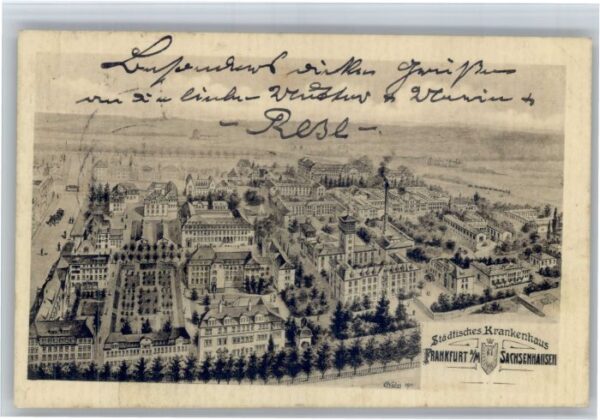 Besonders dicke Grüße
an die liebe Mutter &
- Resl -
Städtisches Krankenhaus
FRANKFURT a/M SACHSENHAUSEN